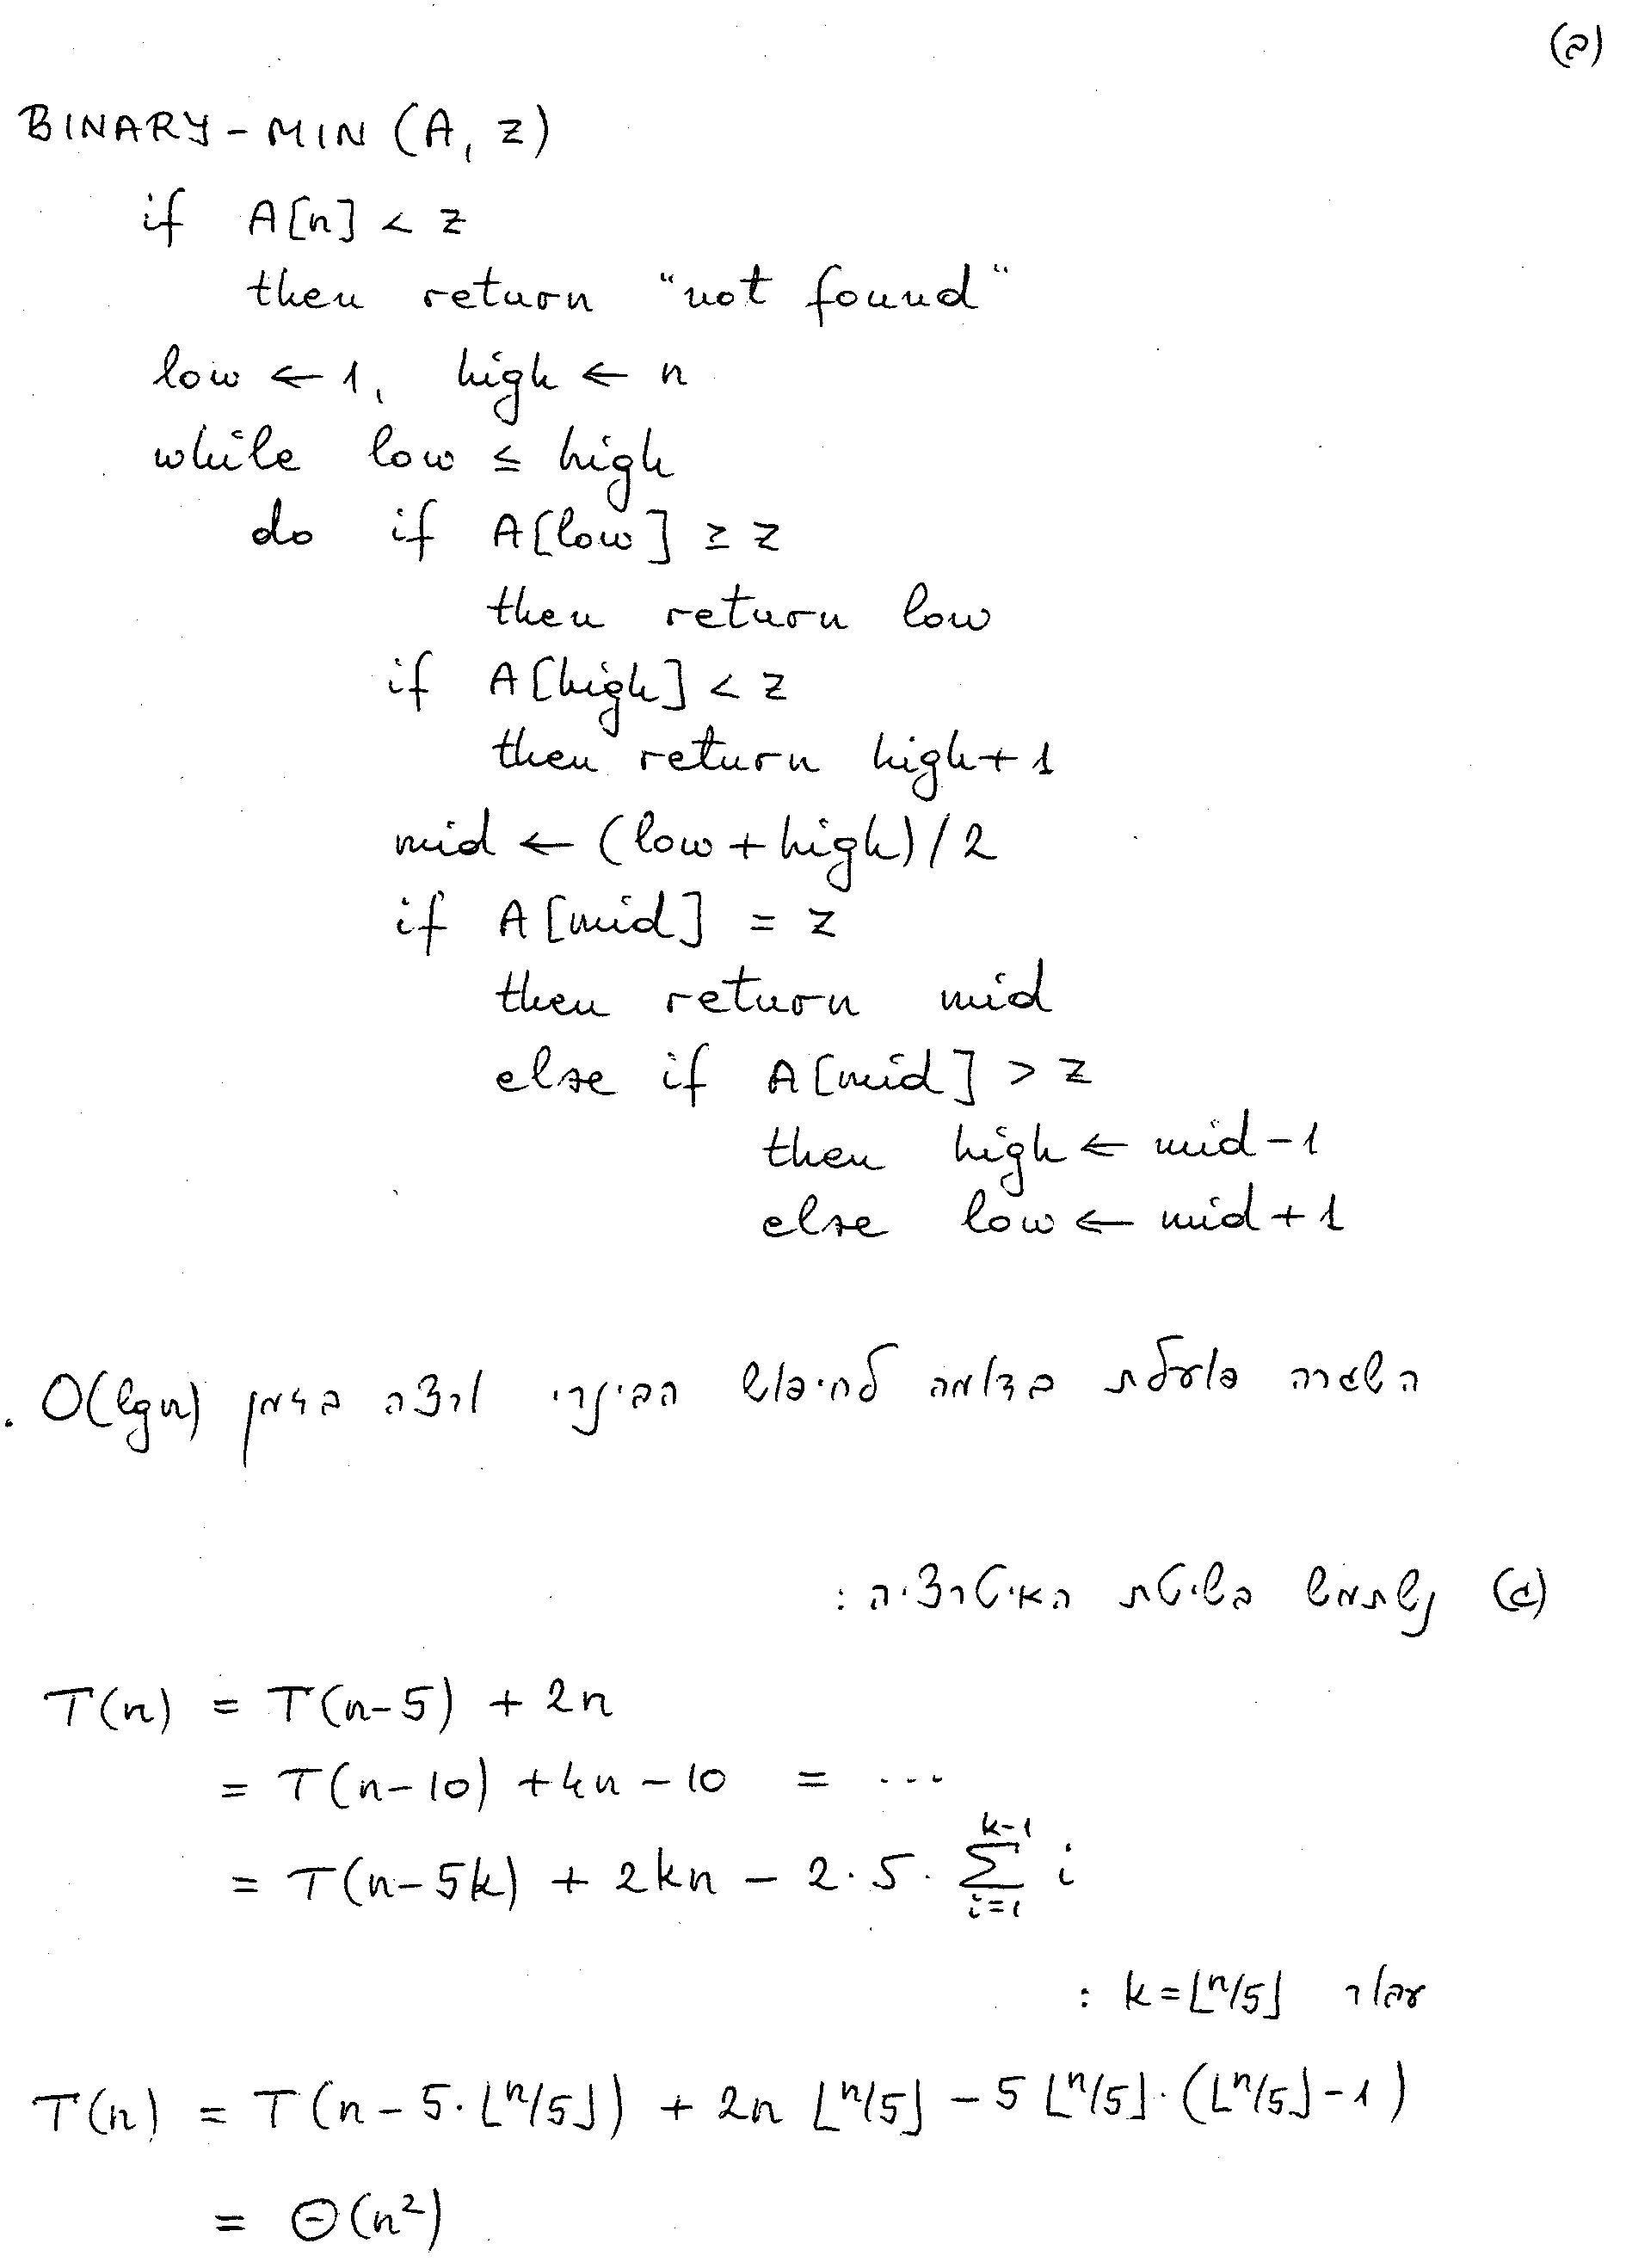 (ב)
BINARY-MIN (A, z)
if A[n] < z
then return "not found"
low ← 1, high ← n
while low ≤ high
do if A[low] ≥ z
then return low
if A[high] < z
then return high+1
mid ← (low + high)/2
if A[mid] = z
then return mid
else if A[mid] > z
then high ← mid-1
else low ← mid+1
השגרה פועלת בדומה לחיפוש הבינרי ורצה בזמן O(lgn).
(ג) נשתמש בשיטת האיטרציה:
T(n) = T(n-5) + 2n
= T(n-10) + 4n - 10 = ...
= T(n-5k) + 2kn - 2·5·∑_{i=1}^{k-1} i
עבור k=⌊n/5⌋:
T(n) = T(n-5·⌊n/5⌋) + 2n ⌊n/5⌋ - 5 ⌊n/5⌋·(⌊n/5⌋-1)
= Θ(n²)